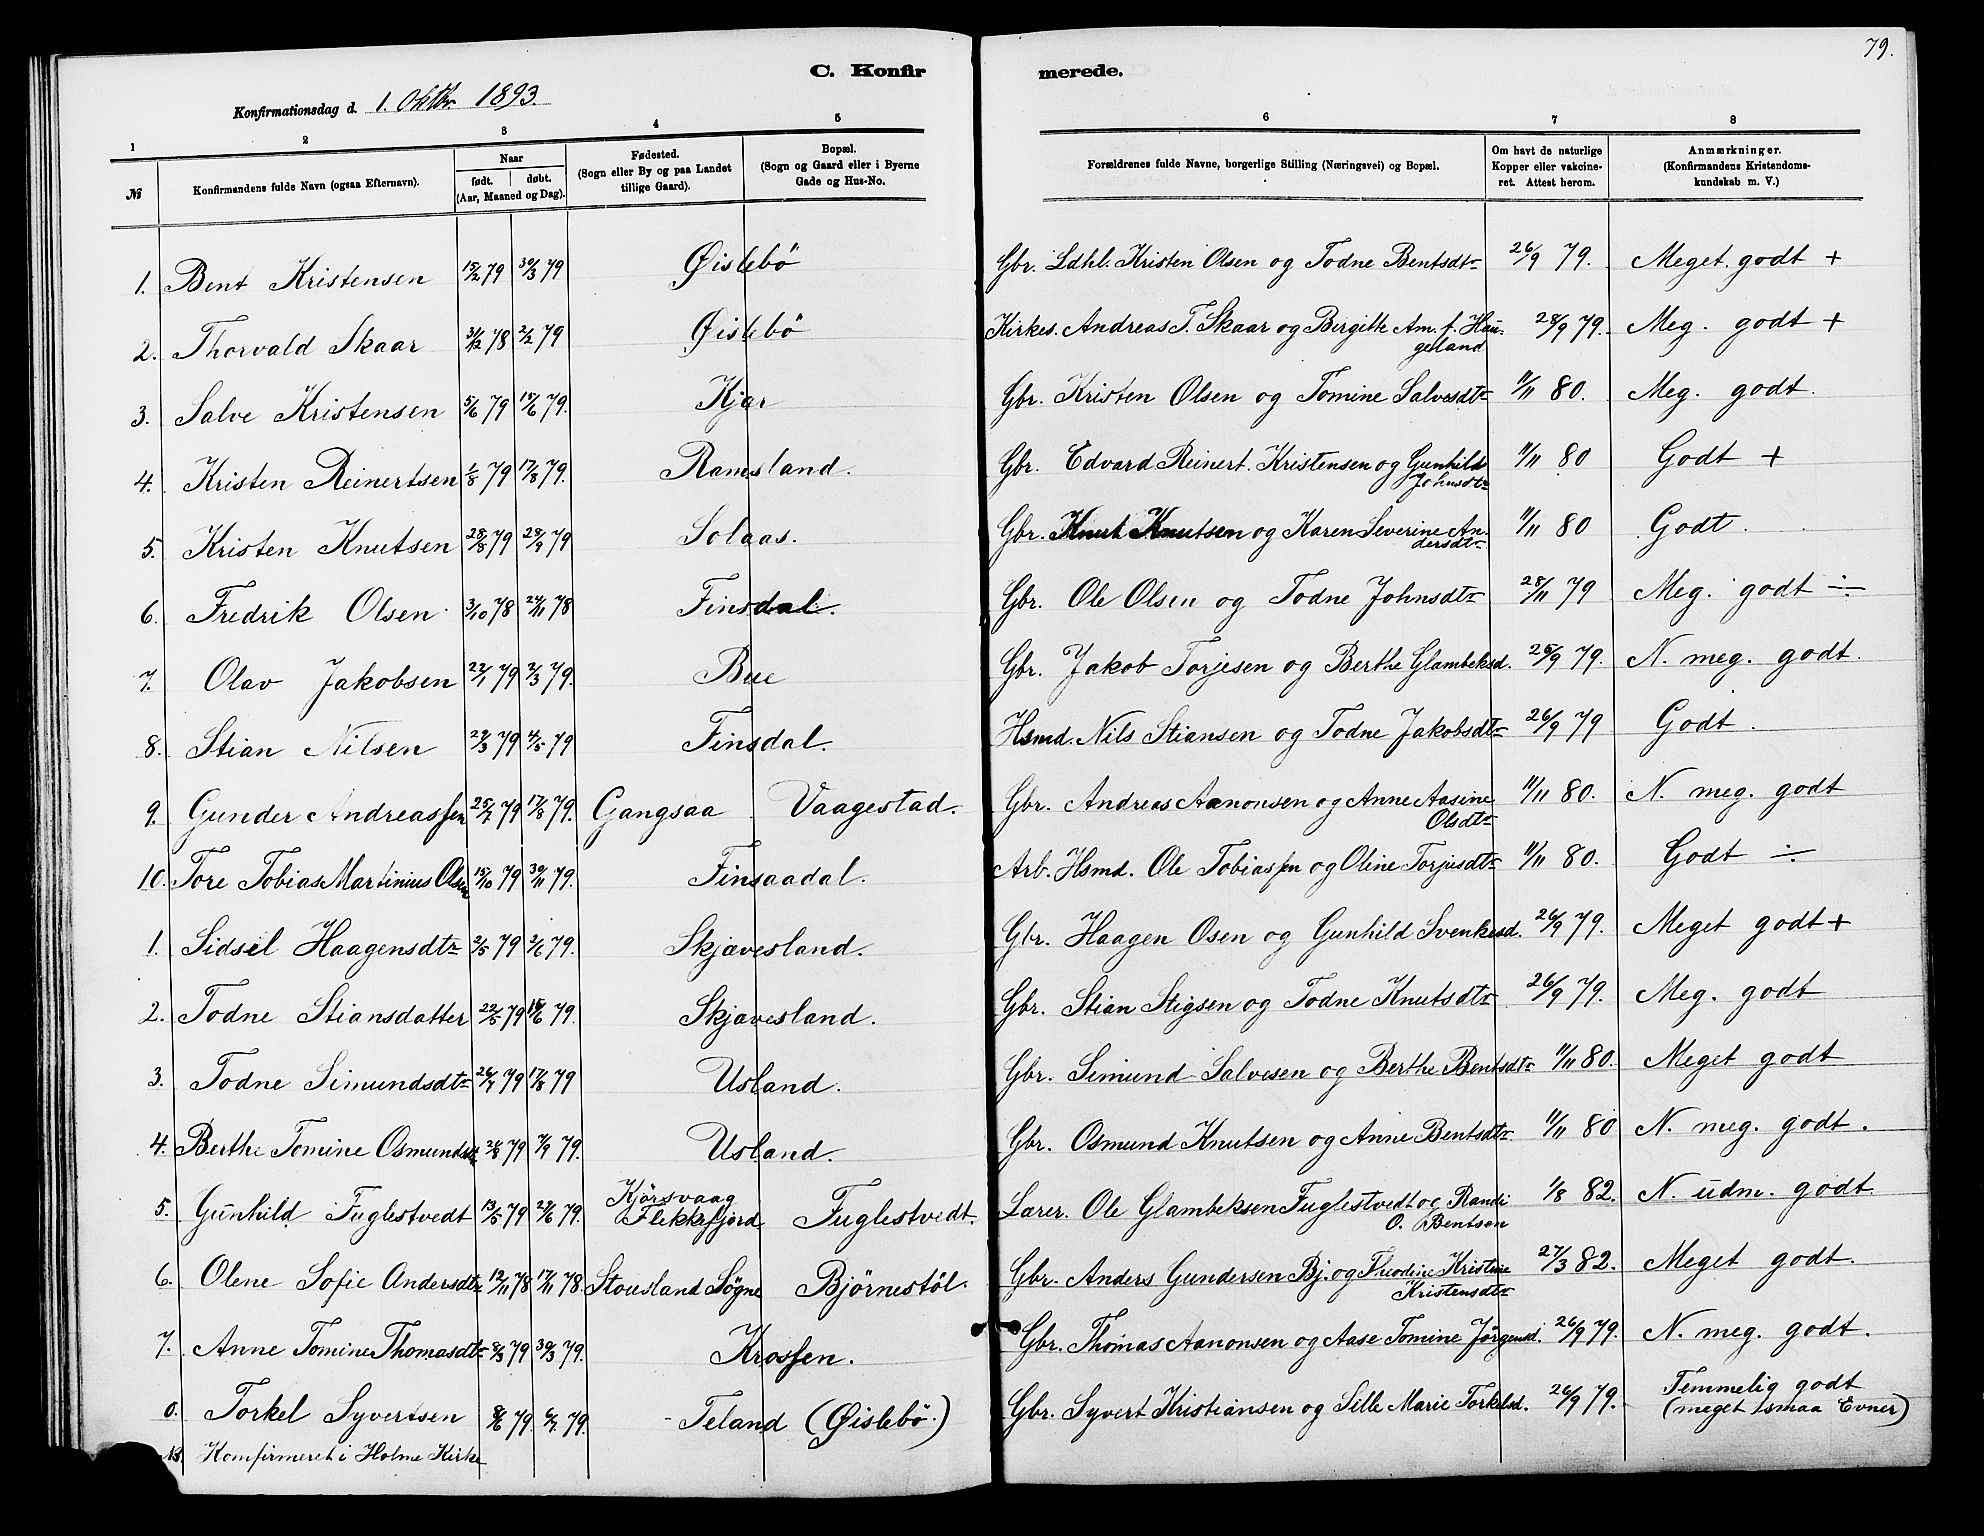 79.
C. Konfir merede.
Konfirmationsdag d. 1. Oktbr. 1893.
1 2 3 4 5 6 7 8
№
Konfirmandens fulde Navn (ogsaa Efternavn).
Naar
født. døbt.
(Aar, Maaned og Dag).
Fødested.
(Sogn eller By og paa Landet
tillige Gaard).
Bopæl.
(Sogn og Gaard eller i Byerne
Gade og Hus-No.
Forældrenes fulde Navne, borgerlige Stilling (Næringsvei) og Bopæl.
Om havt de naturlige
Kopper eller vakcine-
ret. Attest herom.
Anmærkninger.
(Konfirmandens Kristendoms-
kundskab m. V.)
1. Bent Kristensen 15/2 79 30/3 79 Øislebö Gbr. Ldhl. Kristen Olsen og Todne Bentsdtr 26/9 79. Meget godt +
2. Thorvald Skaar 31/12 78 2/2 79 Øislebö Kirkes. Andreas T. Skaar og Bergitte Am. f. Hau- 28/9 79. Meg. godt +
geland
3. Salve Kristensen 5/6 79 15/6 79. Kjær Gbr. Kristen Olsen og Tomine Salvesdtr 11/11 80. Meg. godt.
4. Kristen Reinertsen 1/8 79 17/8 79. Ramsland. Gbr. Edvard Reinert. Kristensen og Gunhild 11/11 80 Godt +
Johnsdtr
5. Kristen Knutsen 28/8 79 28/9 79 Solaas. Gbr. Knut Knutsen og Karen Severine An- 11/11 80 Godt.
dersdtr
6. Fredrik Olsen 3/10 78 24/11 78 Finsdal. Gbr. Ole Olsen og Todne Johnsdtr 28/11 79 Meg. godt ÷
7. Olav Jakobsen 22/1 79 2/3 79. Bue Gbr. Jakob Torjesen og Berthe Glambeksd. 25/9 79. N. meg. godt.
8. Stian Nilsen 24/3 79 4/5 79 Finsdal. Hsmd. Nils Stiansen og Todne Jakobsdtr 26/9 79 Godt.
9. Gunder Andreassen 25/7 79 17/8 79. Gangsaa Vaagestad. Gbr. Andreas Aanonsen og Anne Aasine 11/11 80. N. meg. godt
Olsdtr
10. Tore Tobias Martinius Olsen 15/10 79 30/11 79. Finsaadal. Arb. Hsmd. Ole Tobiassen og Oline Torjusdtr 11/11 80. Godt ÷
1. Sidsel Haagensdtr 2/5 79 2/6 79. Skjævesland. Gbr. Haagen Osen og Gunhild Svenkesd. 26/9 79. Meget godt +
2. Todne Stiansdatter 22/5 79 15/6 79. Skjævesland. Gbr. Stian Stigsen og Todne Knutsdtr 26/9 79. Meg. godt
3. Todne Simundsdtr 26/7 79 17/8 79 Usland. Gbr. Simund Salvesen og Berthe Bentsdtr 11/11 80. Meget godt
4. Berthe Tomine Osmundsdtr 79 7/9 79. Usland. Gbr. Osmund Knutsen og Anne Bentsdtr 11/11 80 N. meg. godt.
5. Gunhild Fuglestvedt 13/5 79 29/6 79. Kjörsvaag Fuglestvedt. Lærer. Ole Glambeksen Fuglestvedt og Randi 1/8 82. N. udm. godt
Flekkefjord O. Bentsen
6. Olene Sofie Andersdtr 12/11 78 17/11 78. Stousland Sögne Björnestöl. Gbr. Anders Gundersen Bj. og Theodine Kristine 27/3 82. Meget godt.
Kristensdtr
7. Anne Tomine Thomasdtr 8/3 79 30/3 79. Krossen. Gbr. Thomas Aanonsen og Aase Tomine Jörgensd. 26/9 79. N. meg. godt.
0. Torkel Syvertsen 8/6 79 6/7 79. Teland (Øislebö.) Gbr. Syvert Kristiansen og Sille Marie Torkelsd. 26/9 79. Temmelig godt
(meget smaa Evner)
NB. Konfirmeret i Holme Kirke